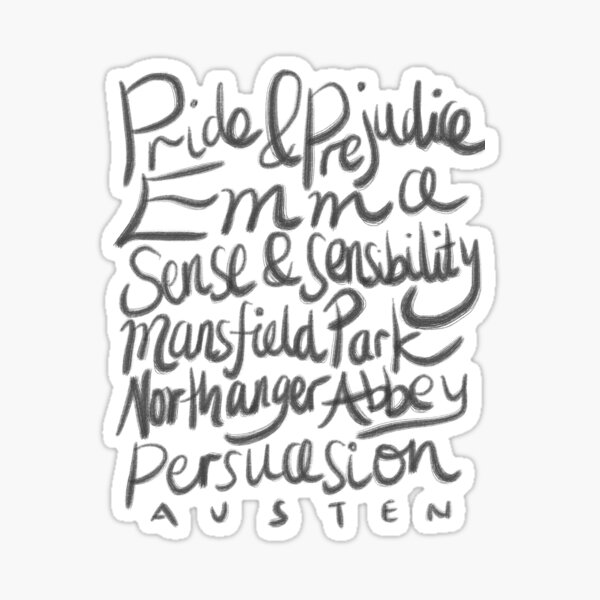 Pride & Prejudice
Emma
Sense & Sensibility
Mansfield Park
Northanger Abbey
Persuasion
AUSTEN